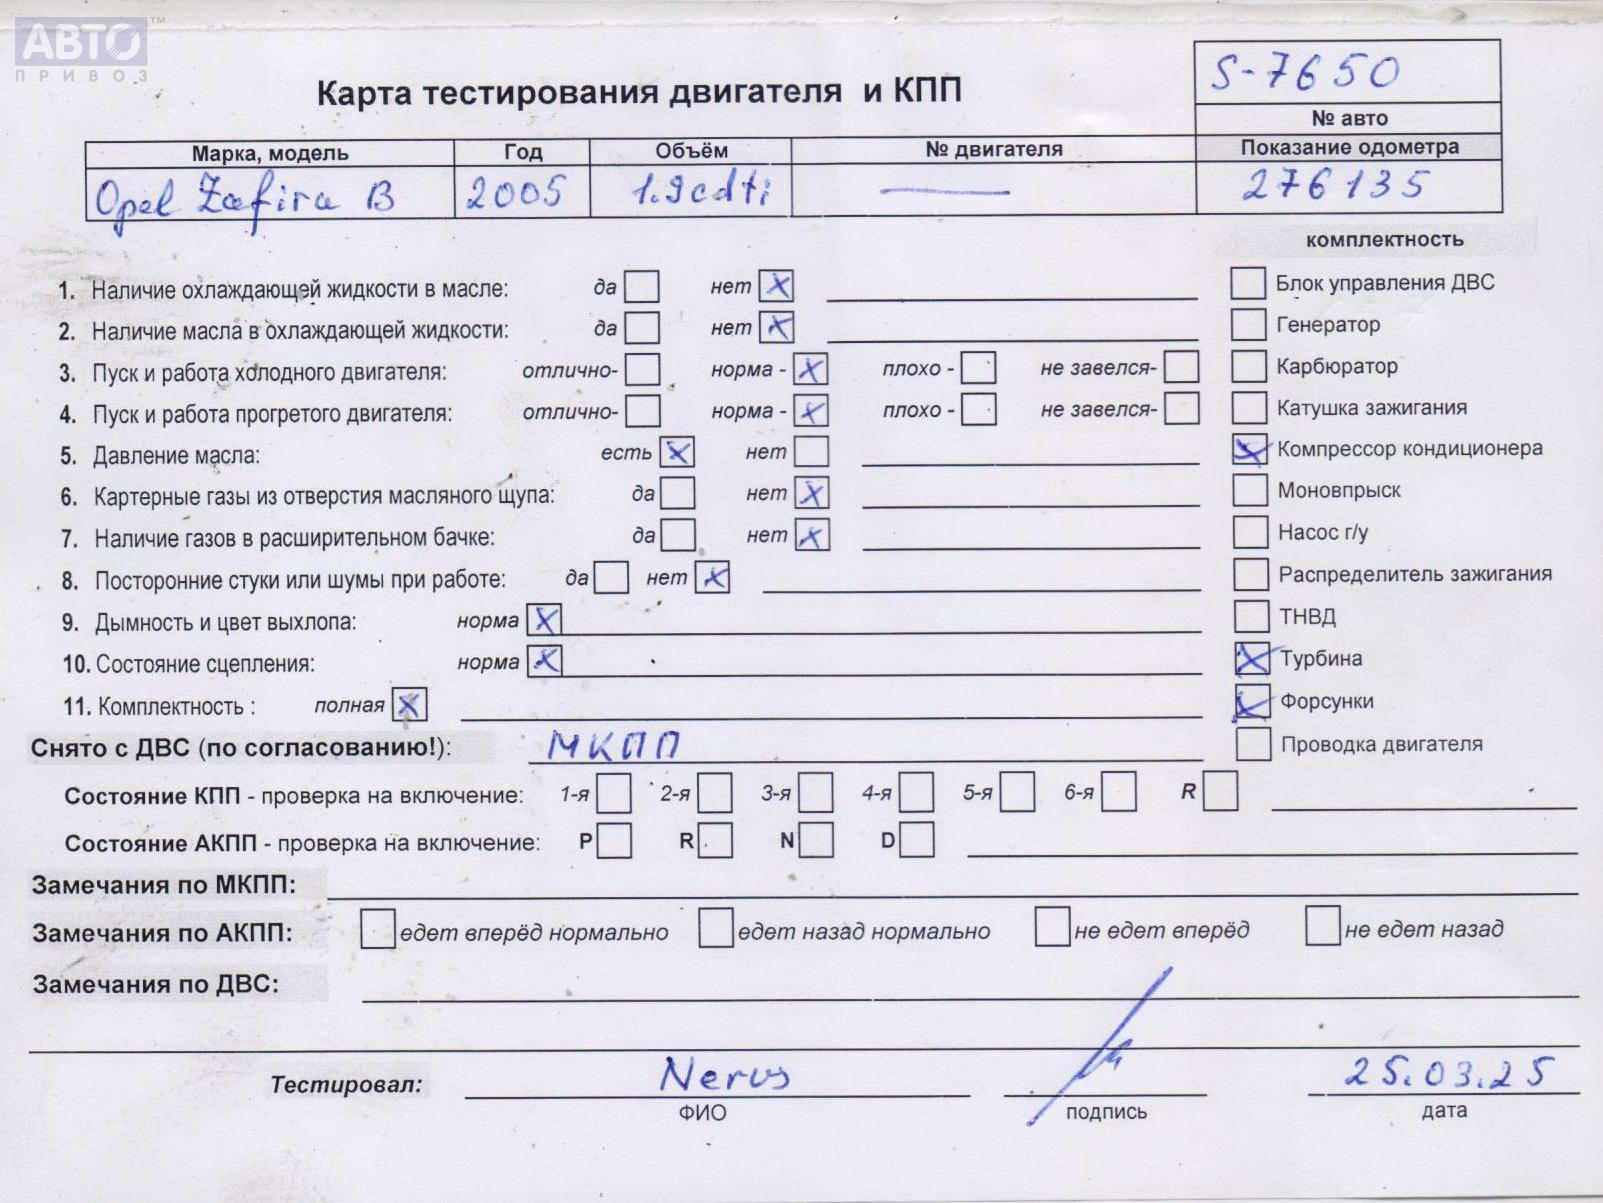 АВТО™
ПРИВОЗ
S-7650
Карта тестирования двигателя и КПП
№ авто
Марка, модель Год Объём № двигателя Показание одометра
Opel Zafira B 2005 1.9cdti — 276135
комплектность
1. Наличие охлаждающей жидкости в масле: да нет X Блок управления ДВС
2. Наличие масла в охлаждающей жидкости: да нет X Генератор
3. Пуск и работа холодного двигателя: отлично- норма - X плохо - не завелся- Карбюратор
4. Пуск и работа прогретого двигателя: отлично- норма - X плохо - не завелся- Катушка зажигания
5. Давление масла: есть X нет X Компрессор кондиционера
6. Картерные газы из отверстия масляного щупа: да нет X Моновпрыск
7. Наличие газов в расширительном бачке: да нет X Насос г/у
8. Посторонние стуки или шумы при работе: да нет X Распределитель зажигания
9. Дымность и цвет выхлопа: норма X ТНВД
10. Состояние сцепления: норма X X Турбина
11. Комплектность : полная X X Форсунки
Снято с ДВС (по согласованию!): МКПП Проводка двигателя
Состояние КПП - проверка на включение: 1-я 2-я 3-я 4-я 5-я 6-я R
Состояние АКПП - проверка на включение: P R N D
Замечания по МКПП:
Замечания по АКПП: едет вперёд нормально едет назад нормально не едет вперёд не едет назад
Замечания по ДВС:
Тестировал: Nerus 25.03.25
ФИО подпись дата